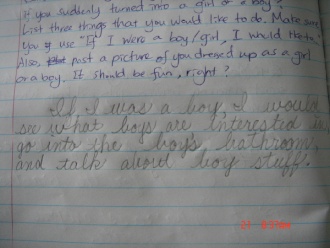 if you suddenly turned into a girl or a boy?
List three things that you would like to do. Make sure
you use "If I were a boy/girl, I would
Also, post a picture of you dressed up as a girl
or a boy. It should be fun, right?
If I was a boy I would
see what boys are interested in
go into the boys bathroom,
and talk about boy stuff.